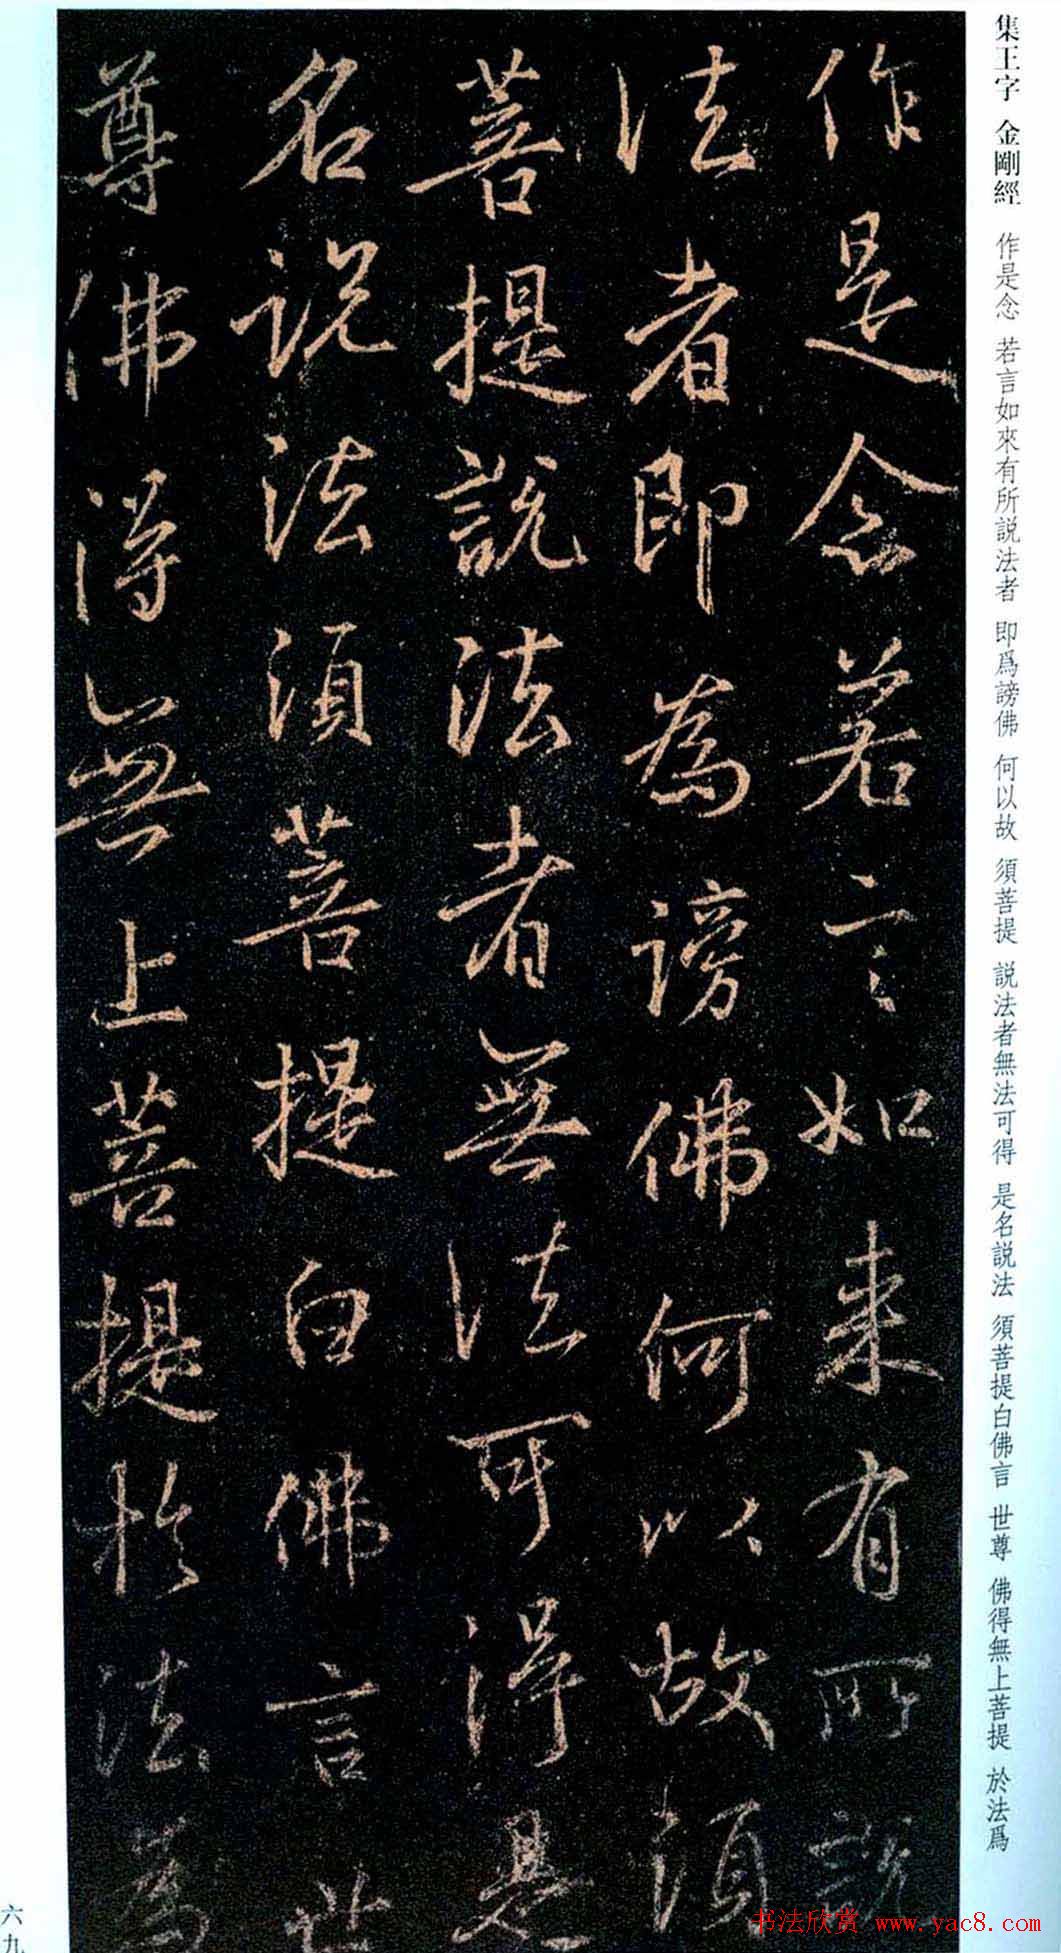 集王字 金剛經 作是念 若言如來有所説法者 即爲謗佛 何以故 須菩提 説法者無法可得 是名説法 須菩提白佛言 世尊 佛得無上菩提 於法爲
作是念若言如来有所説
法者即為謗佛何以故須
菩提説法者無法可得是
名説法須菩提白佛言世
尊佛得無上菩提於法為
六九
书法欣赏 www.yac8.com